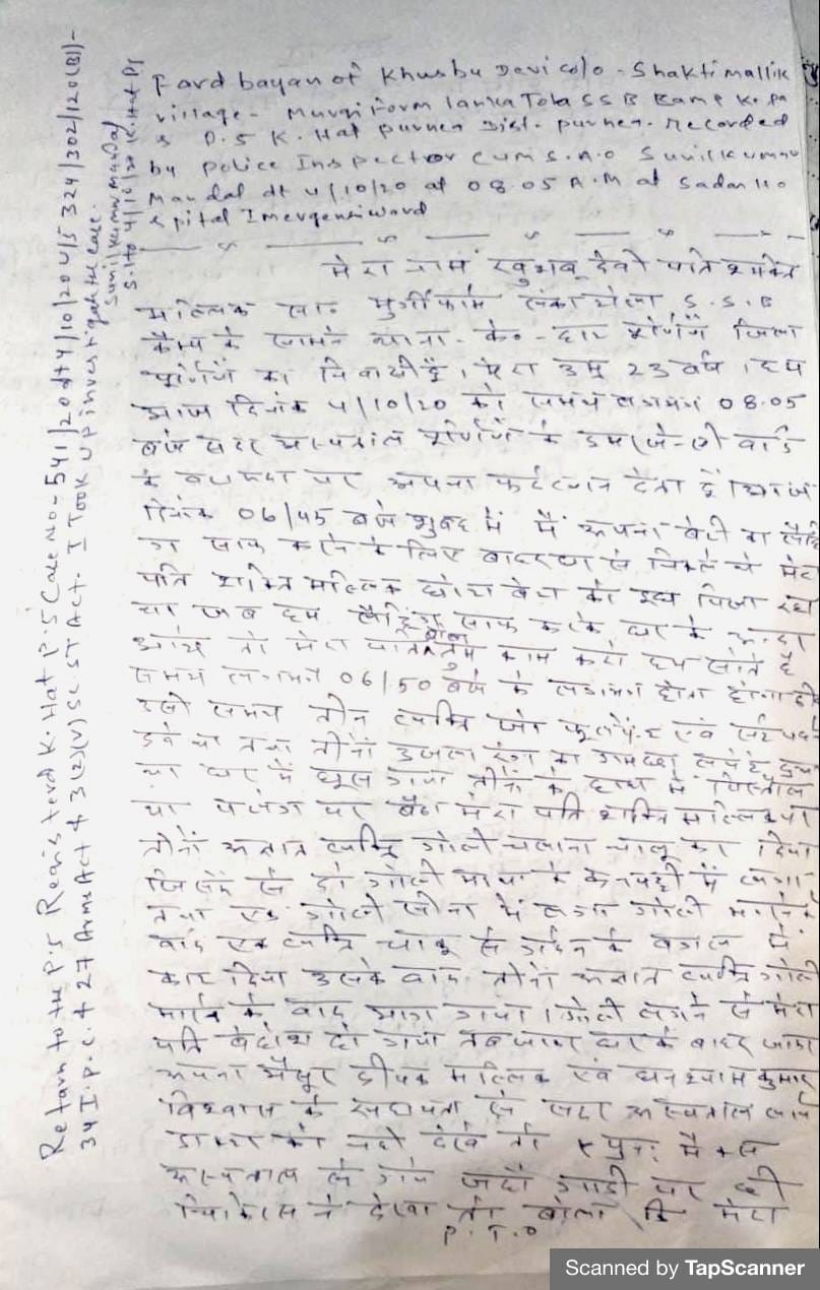 Fard bayan of Khusbu Devi c/o - Shakti mallik
village - Murgi Form lanka Tola SSB Camp K.
P.S K. Hat purnea Dist. purnea. Recorded
by police Inspector cum S.H.O Sunil kumar
Mandal dt 4/10/20 at 08.05 A.M at Sadar Ho
spital Imergensi ward
मेरा नाम खुशबू देवी पति शक्ति
मल्लिक सा० मुर्गी फार्म लंका टोला S.S.B
कैम्प के सामने थाना - के० - हाट पूर्णियाँ जिला
पूर्णियाँ का निवासी हूँ। मेरा उम्र 23 वर्ष।
आज दिनांक 4/10/20 को समय लगभग 08.05
बजे सदर अस्पताल पूर्णियाँ के इमरजेन्सी वार्ड
के पर अपना फर्दब्यान देता हूँ कि आज
दिनांक 06/45 बजे सुबह में मैं अपना बेटी का
साफ करने के लिए बाहर घर से निकले थे मेरा
पति शक्ति मल्लिक छोटा बेटा को दूध पिला रहा
था जब हम साफ करके घर के अन्दर
आये तो मेरा पति बोला तुम काम करो हम सोते है
समय लगभग 06/50 बजे के लगभग होता होगा
उसी समय तीन व्यक्ति जो फुलपैंट एवं सर्ट पहने
हुये था तथा तीनों उजला रंग का गमछा लपेटे हुए
था घर में घूस गया तीनों के हाथ में पिस्तौल
था पलंग पर बैठा मेरा पति शक्ति मल्लिक था
तीनों अज्ञात व्यक्ति गोली चलाना चालू कर दिया
जिसमें से दो गोली माथा के कनपट्टी में लगा
तथा एक गोली सीना में लगा गोली मारने के
बाद एक व्यक्ति चाकू से गर्दन के बगल में
काट दिया उसके बाद तीनों अज्ञात व्यक्ति गोली
मारने के बाद भाग गया। गोली लगने से मेरा
पति बेहोश हो गया तब जाकर घर के बाहर जाकर
अपना भैसुर दीपक मल्लिक एवं घनश्याम कुमार
विश्वास के सहायता से सदर अस्पताल लाये
डाक्टर को नहीं देखे तो पुन: मैक्स
अस्पताल ले गये जहाँ गाड़ी पर ही
चिकित्सक ने देखा तो बोला कि मेरा
P.T.O
Return to the P.S Registerd K. Hat P.S Case No - 541/20 dt 4/10/20 u/s 324/302/120(B)-
34 I.P.C. & 27 Arms Act & 3(2)(v) SC ST Act. I Took up investigate the case.
Sunil Kumar Mandal
S.H.O 4/10/20 K. Hat PS
Scanned by TapScanner